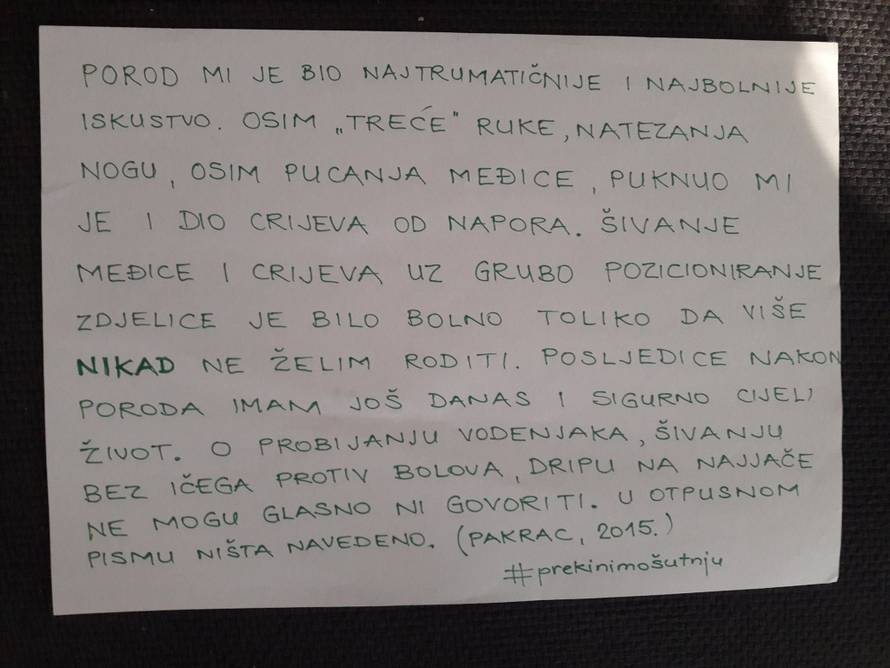 POROD MI JE BIO NAJTRUMATIČNIJE I NAJBOLNIJE
ISKUSTVO. OSIM „TREĆE" RUKE, NATEZANJA
NOGU, OSIM PUCANJA MEĐICE, PUKNUO MI
JE I DIO CRIJEVA OD NAPORA. ŠIVANJE
MEĐICE I CRIJEVA UZ GRUBO POZICIONIRANJE
ZDJELICE JE BILO BOLNO TOLIKO DA VIŠE
NIKAD NE ŽELIM RODITI. POSLJEDICE NAKON
PORODA IMAM JOŠ DANAS I SIGURNO CIJELI
ŽIVOT. O PROBIJANJU VODENJAKA, ŠIVANJU
BEZ IČEGA PROTIV BOLOVA, DRIPU NA NAJJAČE
NE MOGU GLASNO NI GOVORITI. U OTPUSNOM
PISMU NIŠTA NAVEDENO. (PAKRAC, 2015.)
#prekinimošutnju